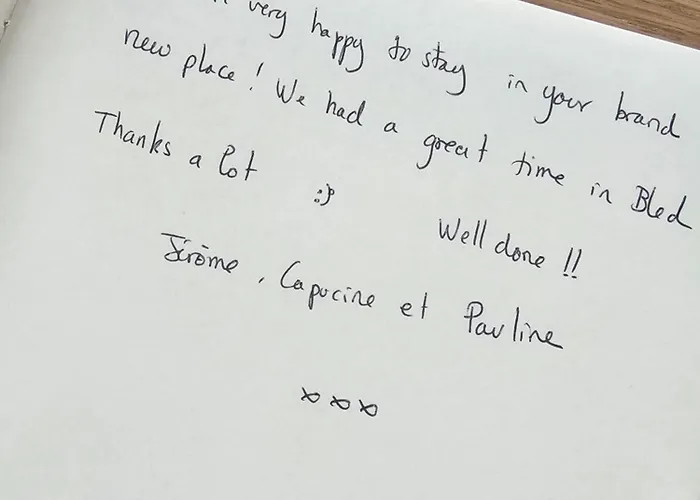 very happy to stay in your brand
new place! We had a great time in Bled
Thanks a lot :)
Well done !!
Jérôme, Capucine et Pauline
xxx